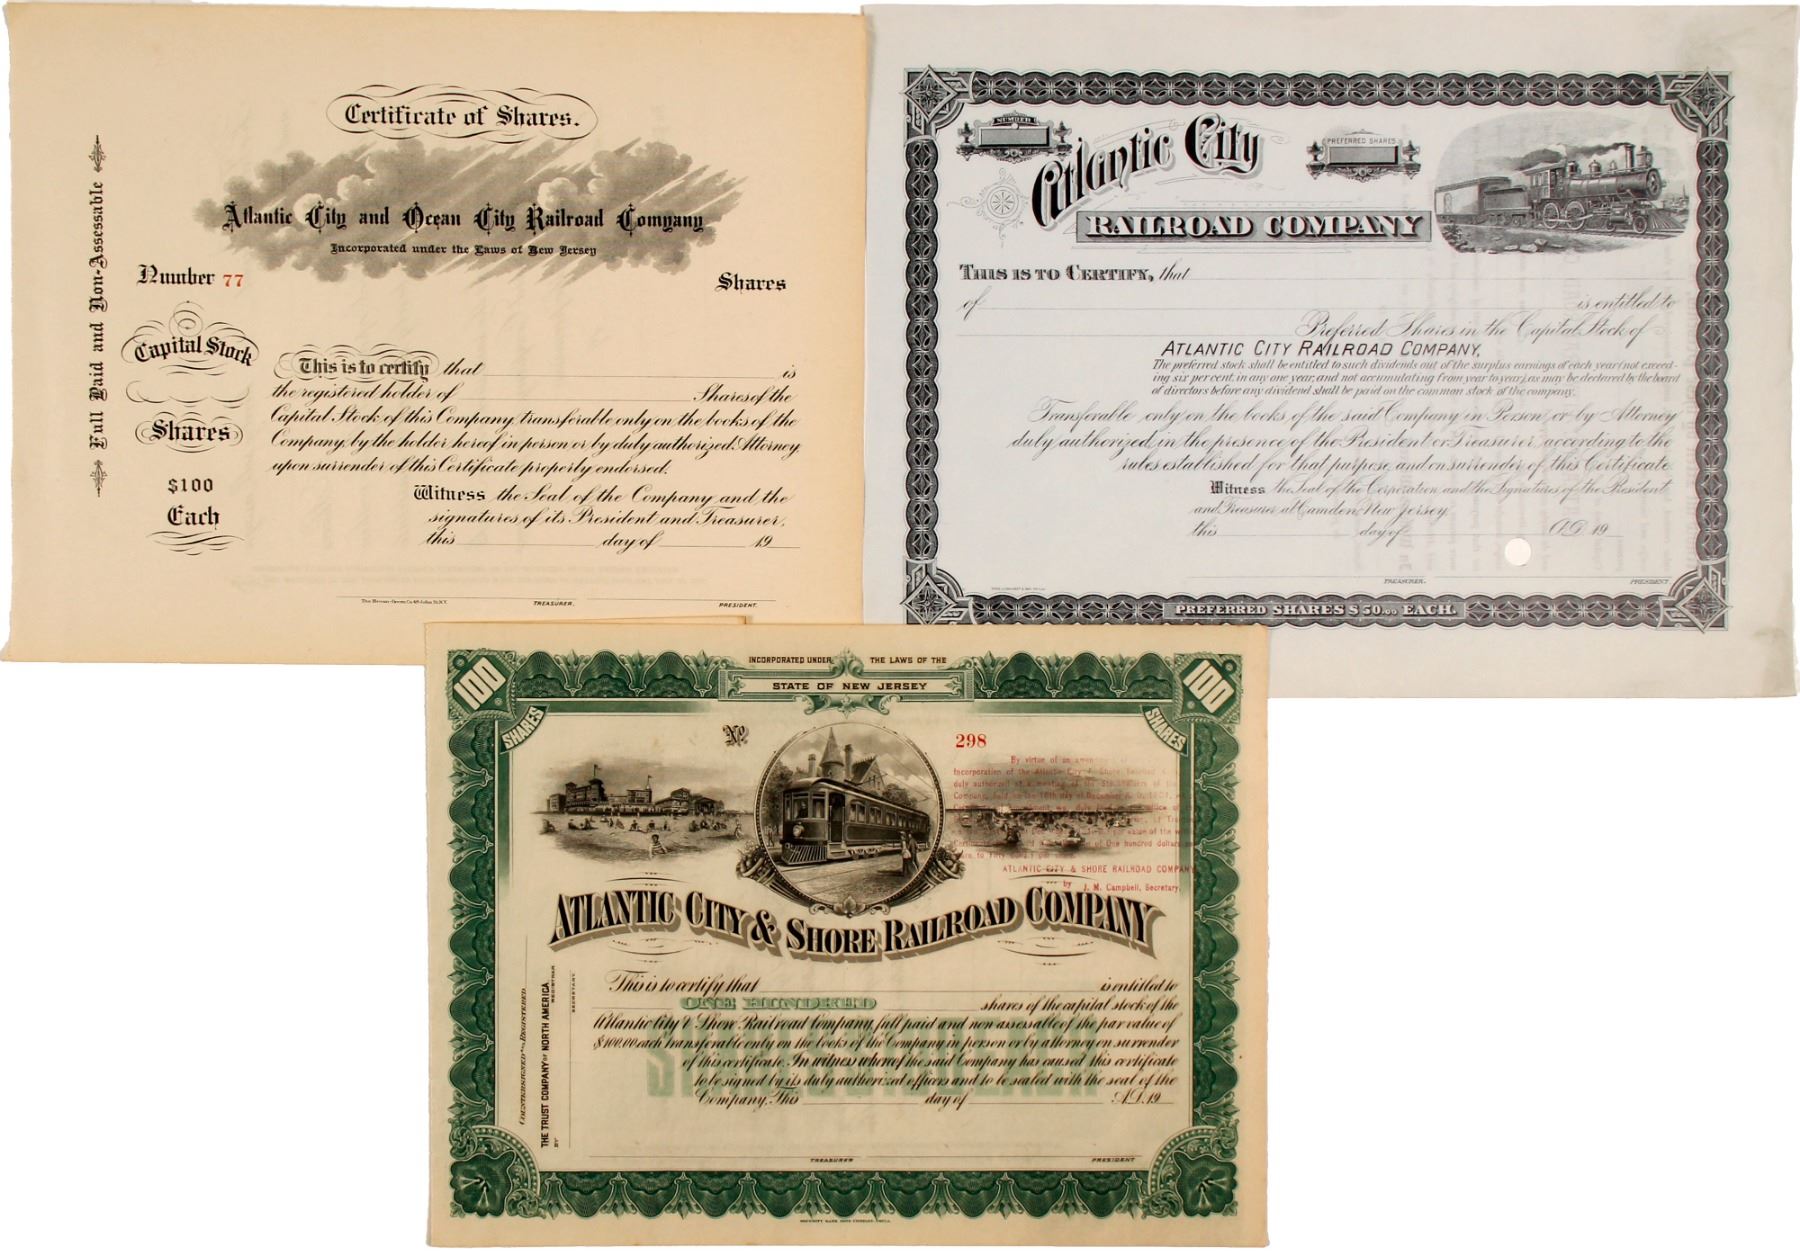 Certificate of Shares.
Atlantic City and Ocean City Railroad Company
Incorporated under the Laws of New Jersey
Number 77
Shares
Full Paid and Non-Assessable
Capital Stock
Shares
$100
Each
This is to certify that is
the registered holder of Shares of the
Capital Stock of this Company transferable only on the books of the
Company by the holder hereof in person or by duly authorized Attorney
upon surrender of this Certificate properly endorsed.
Witness the Seal of the Company and the
signatures of its President and Treasurer,
this day of 19
TREASURER. PRESIDENT.
NUMBER
PREFERRED SHARES
Atlantic City
RAILROAD COMPANY
THIS IS TO CERTIFY, that
of is entitled to
Preferred Shares in the Capital Stock of
ATLANTIC CITY RAILROAD COMPANY,
The preferred stock shall be entitled to such dividends out of the surplus earnings of each year (not exceed-
ing six per cent. in any one year, and not accumulating from year to year), as may be declared by the board
of directors before any dividend shall be paid on the common stock of the company.
Transferable only on the books of the said Company in Person or by Attorney
duly authorized, in the presence of the President or Treasurer, according to the
rules established for that purpose, and on surrender of this Certificate.
Witness the Seal of the Corporation and the Signatures of the President
and Treasurer at Camden, New Jersey.
this day of A.D. 19
TREASURER. PRESIDENT.
PREFERRED SHARES $50.00 EACH.
100 SHARES
INCORPORATED UNDER THE LAWS OF THE
STATE OF NEW JERSEY
100 SHARES
No. 298
By virtue of an
Incorporation of the Atlantic City & Shore Railroad
duly authorized at a meeting of the Stockholders of the
Company, held on the 16th day of December A. D.
value of the
of One hundred dollars
to Fifty
ATLANTIC CITY & SHORE RAILROAD COMPANY
by J. M. Campbell, Secretary.
ATLANTIC CITY & SHORE RAILROAD COMPANY
COUNTERSIGNED AND REGISTERED
THE TRUST COMPANY OF NORTH AMERICA
REGISTRAR
BY
SECRETARY
This is to certify that is entitled to
ONE HUNDRED shares of the capital stock of the
Atlantic City & Shore Railroad Company, full paid and non assessable of the par value of
$100.00 each transferable only on the books of the Company in person or by attorney on surrender
of this certificate. In witness whereof the said Company has caused this certificate
to be signed by its duly authorized officers and to be sealed with the seal of the
Company. This day of A.D. 19
TREASURER PRESIDENT
SECURITY BANK NOTE COMPANY, PHILA.